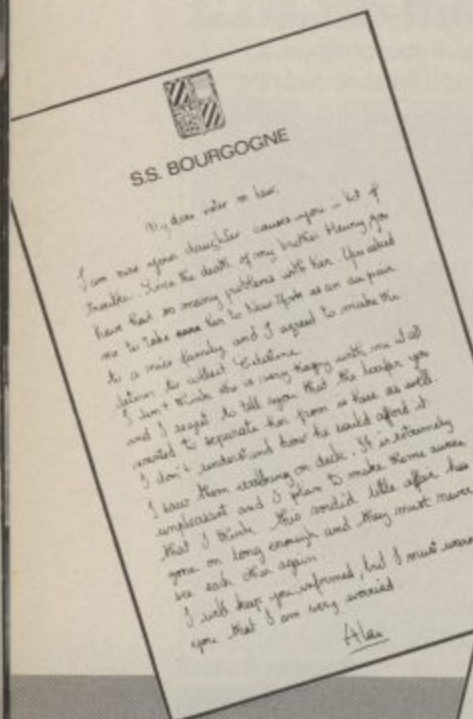 S.S. BOURGOGNE
My dear sister in law,
I am sure your daughter causes you a lot of
trouble. Since the death of my brother Henry you
have had so many problems with her. You asked
me to take her to New York as an au pair
to a nice family and I agreed to make the
detour to collect Celestine.
I don't think she is very happy with me at all
and I regret to tell you that the loafer you
wanted to separate her from is here as well.
I don't understand how he could afford it.
I saw them walking on deck. It is extremely
unpleasant and I plan to make them aware
that I think this sordid little affair has
gone on long enough and they must never
see each other again.
I will keep you informed, but I must warn
you that I am very worried